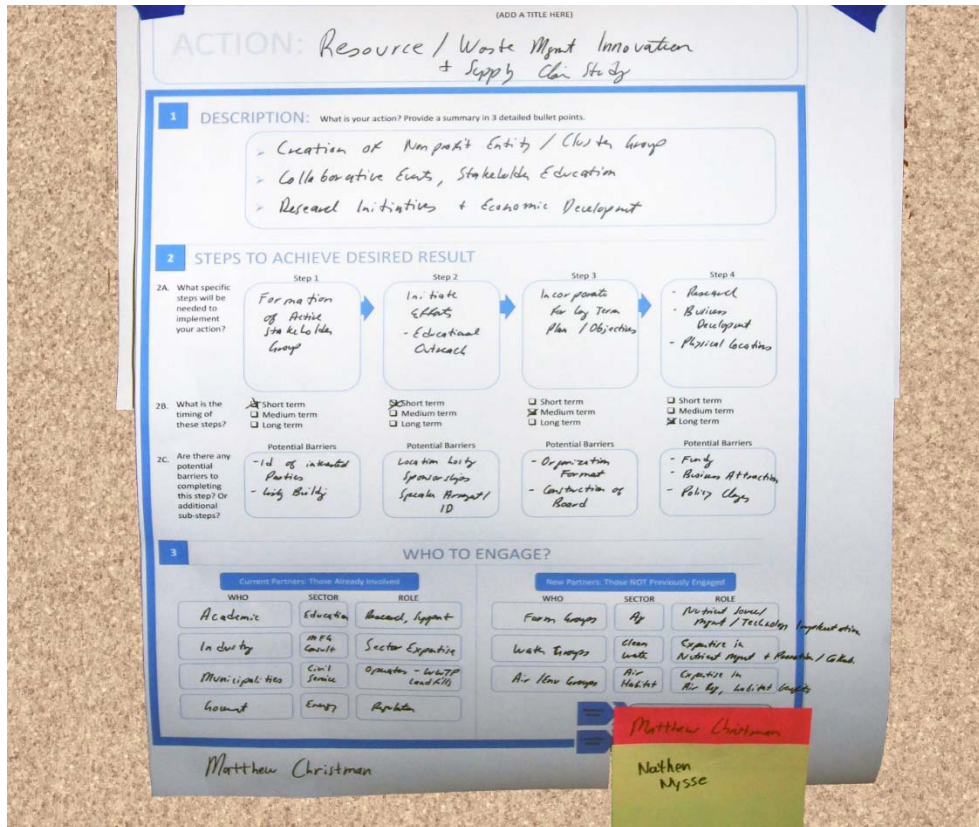 (ADD A TITLE HERE)
ACTION: Resource / Waste Mgmt Innovation
+ Supply Chain Study
1 DESCRIPTION: What is your action? Provide a summary in 3 detailed bullet points.
- Creation of Nonprofit Entity / Cluster Group
- Collaborative Events, Stakeholder Education
- Research Initiatives + Economic Development
2 STEPS TO ACHIEVE DESIRED RESULT
Step 1 Step 2 Step 3 Step 4
2A. What specific
steps will be
needed to
implement
your action?
Formation
of Active
Stakeholder
Group
Initiate
Efforts
- Educational
Outreach
Incorporate
For Long Term
Plan / Objectives
- Research
- Business
Development
- Physical Locations
2B. What is the
timing of
these steps?
Short term
Medium term
Long term
Short term
Medium term
Long term
Short term
Medium term
Long term
Short term
Medium term
Long term
2C. Are there any
potential
barriers to
completing
this step? Or
additional
sub-steps?
Potential Barriers
- Id of interested
Parties
- Building
Potential Barriers
Location
Sponsorships
Speaker
ID
Potential Barriers
- Organization
Format
- Construction of
Board
Potential Barriers
- Funding
- Business Attraction
- Policy Changes
3 WHO TO ENGAGE?
Current Partners: Those Already Involved
WHO SECTOR ROLE
Academic Education Research, Support
Industry MFG Consult Sector Expertise
Municipalities Civil Service Operators - WWTP Landfills
Energy
New Partners: Those NOT Previously Engaged
WHO SECTOR ROLE
Farm Groups Ag Nutrient Mgmt / Technology Implementation
Water Groups Clean Water Expertise in Nutrient Mgmt + Prevention /
Air / Env Groups Air Habitat Expertise in Air Reg, habitat
Matthew Christman
Matthew Christman
Nathen
Nysse